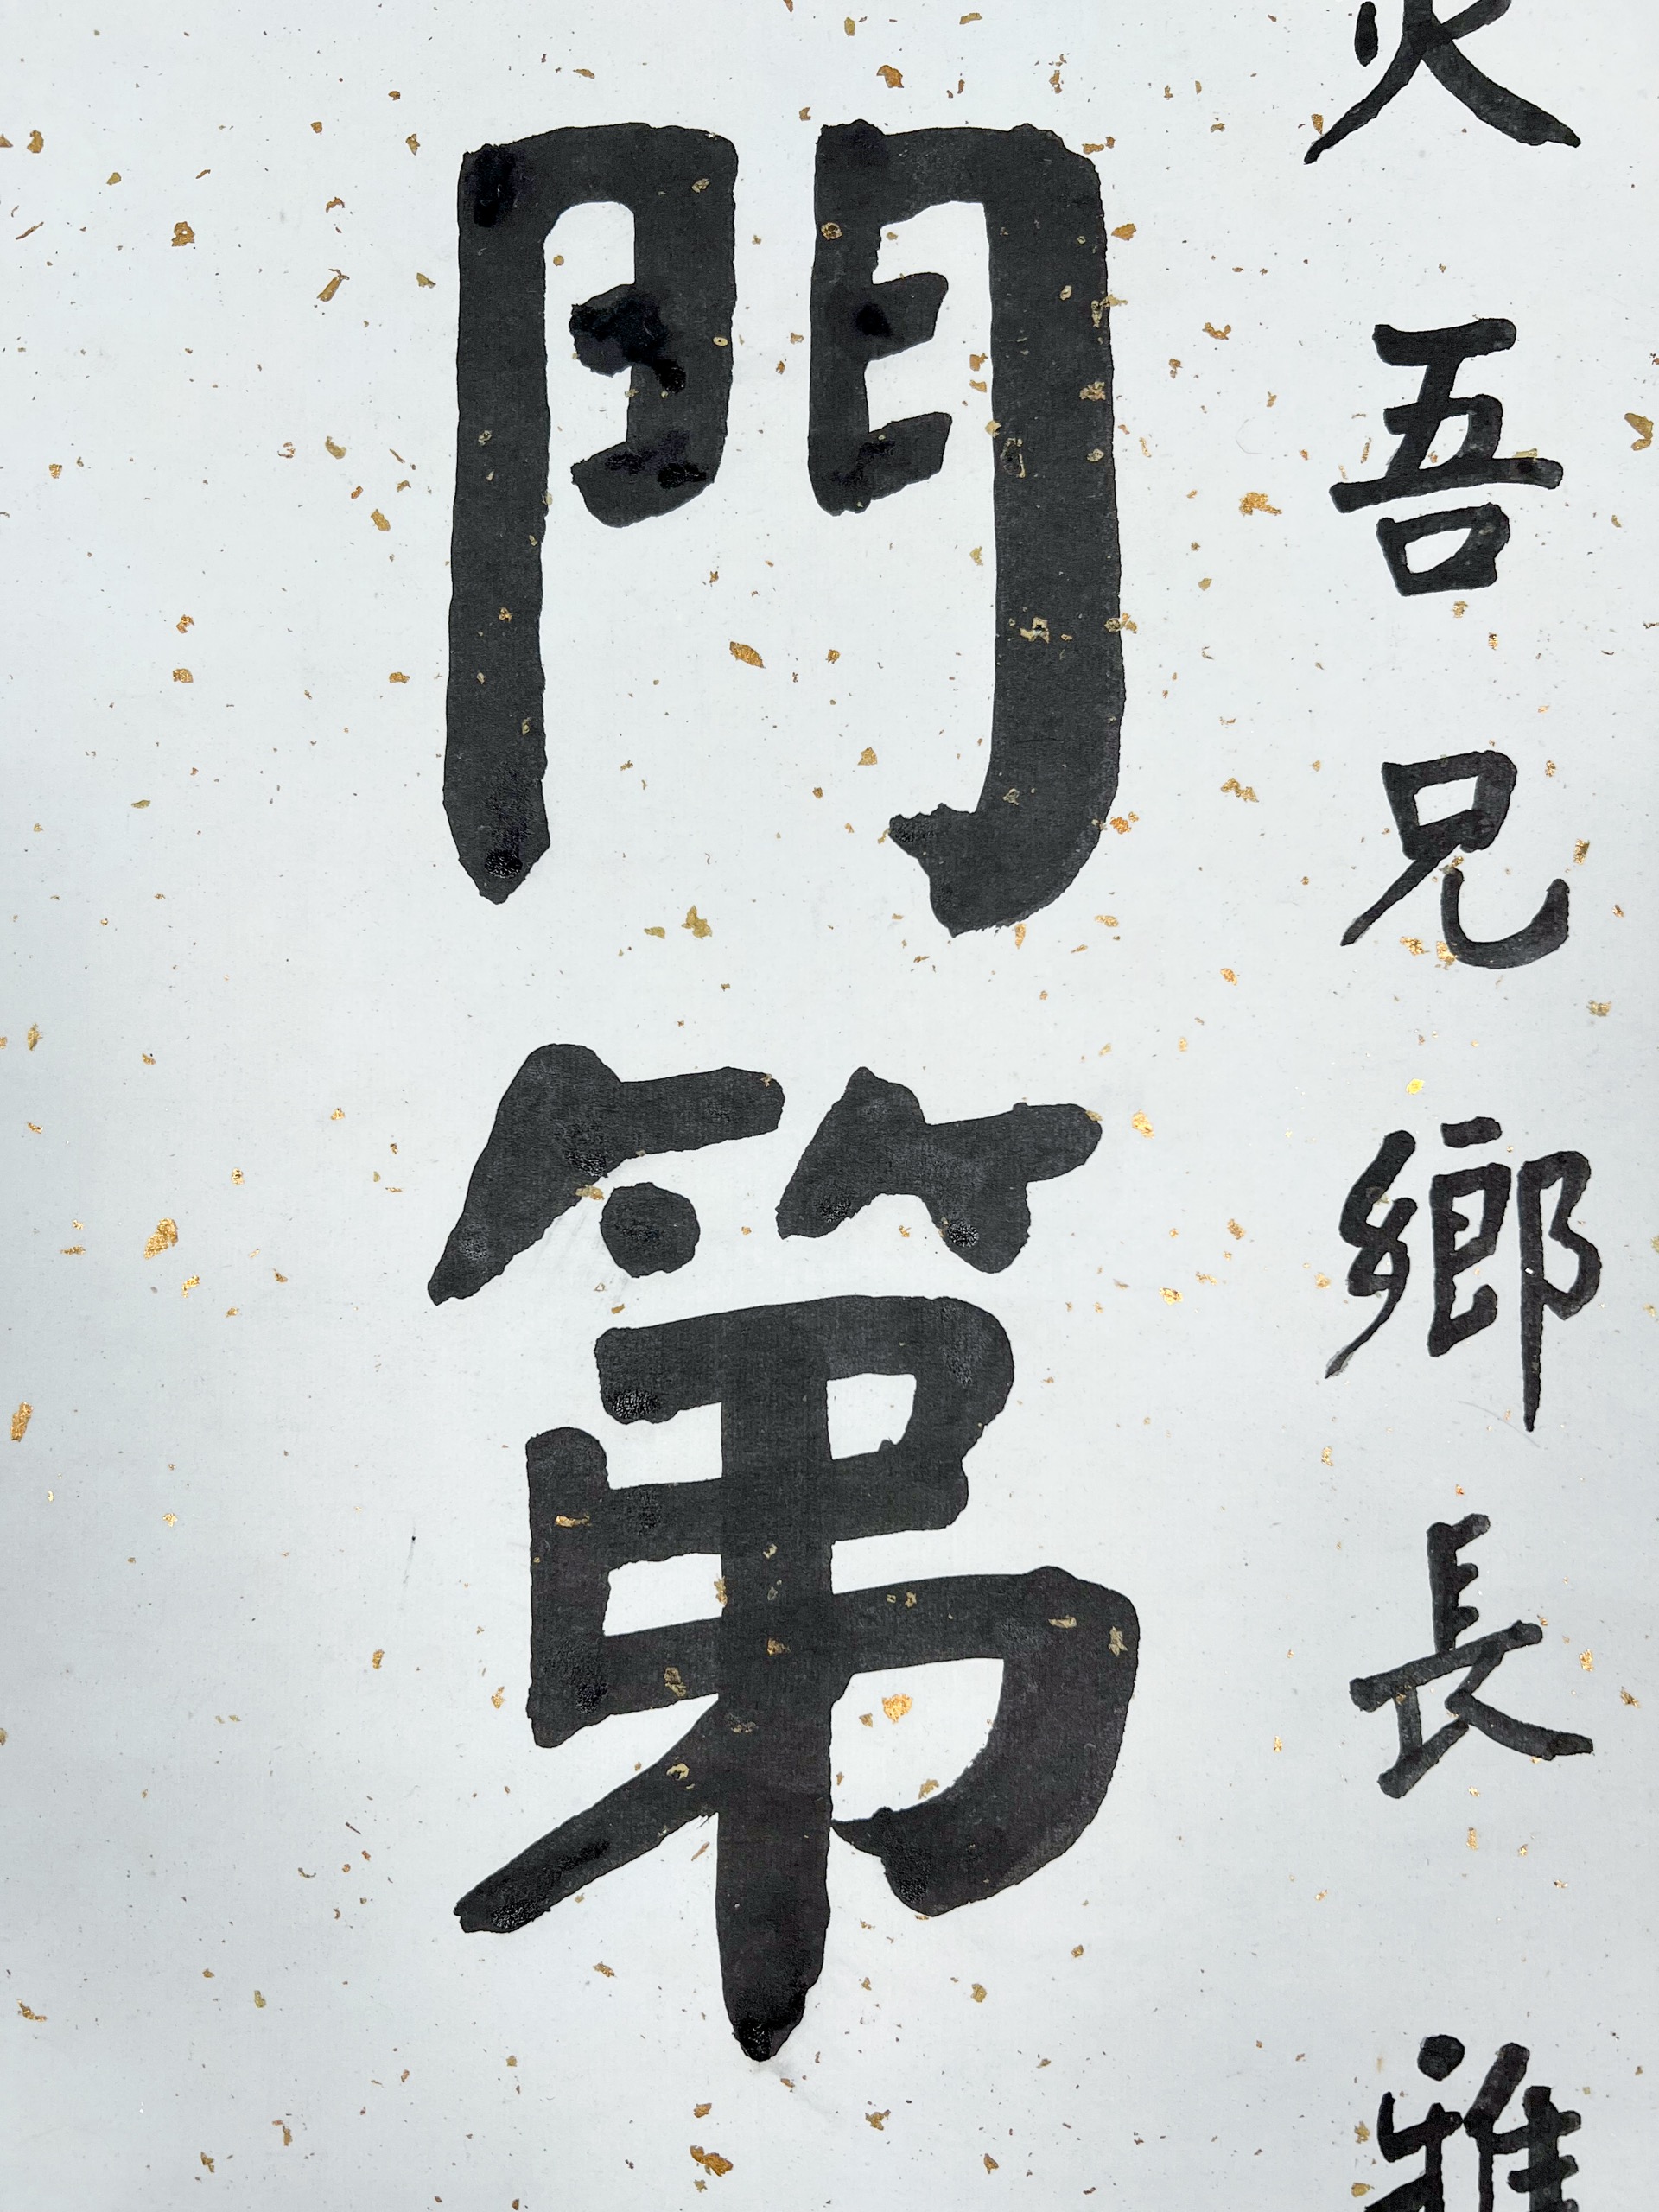 吾兄鄉長雅
門第